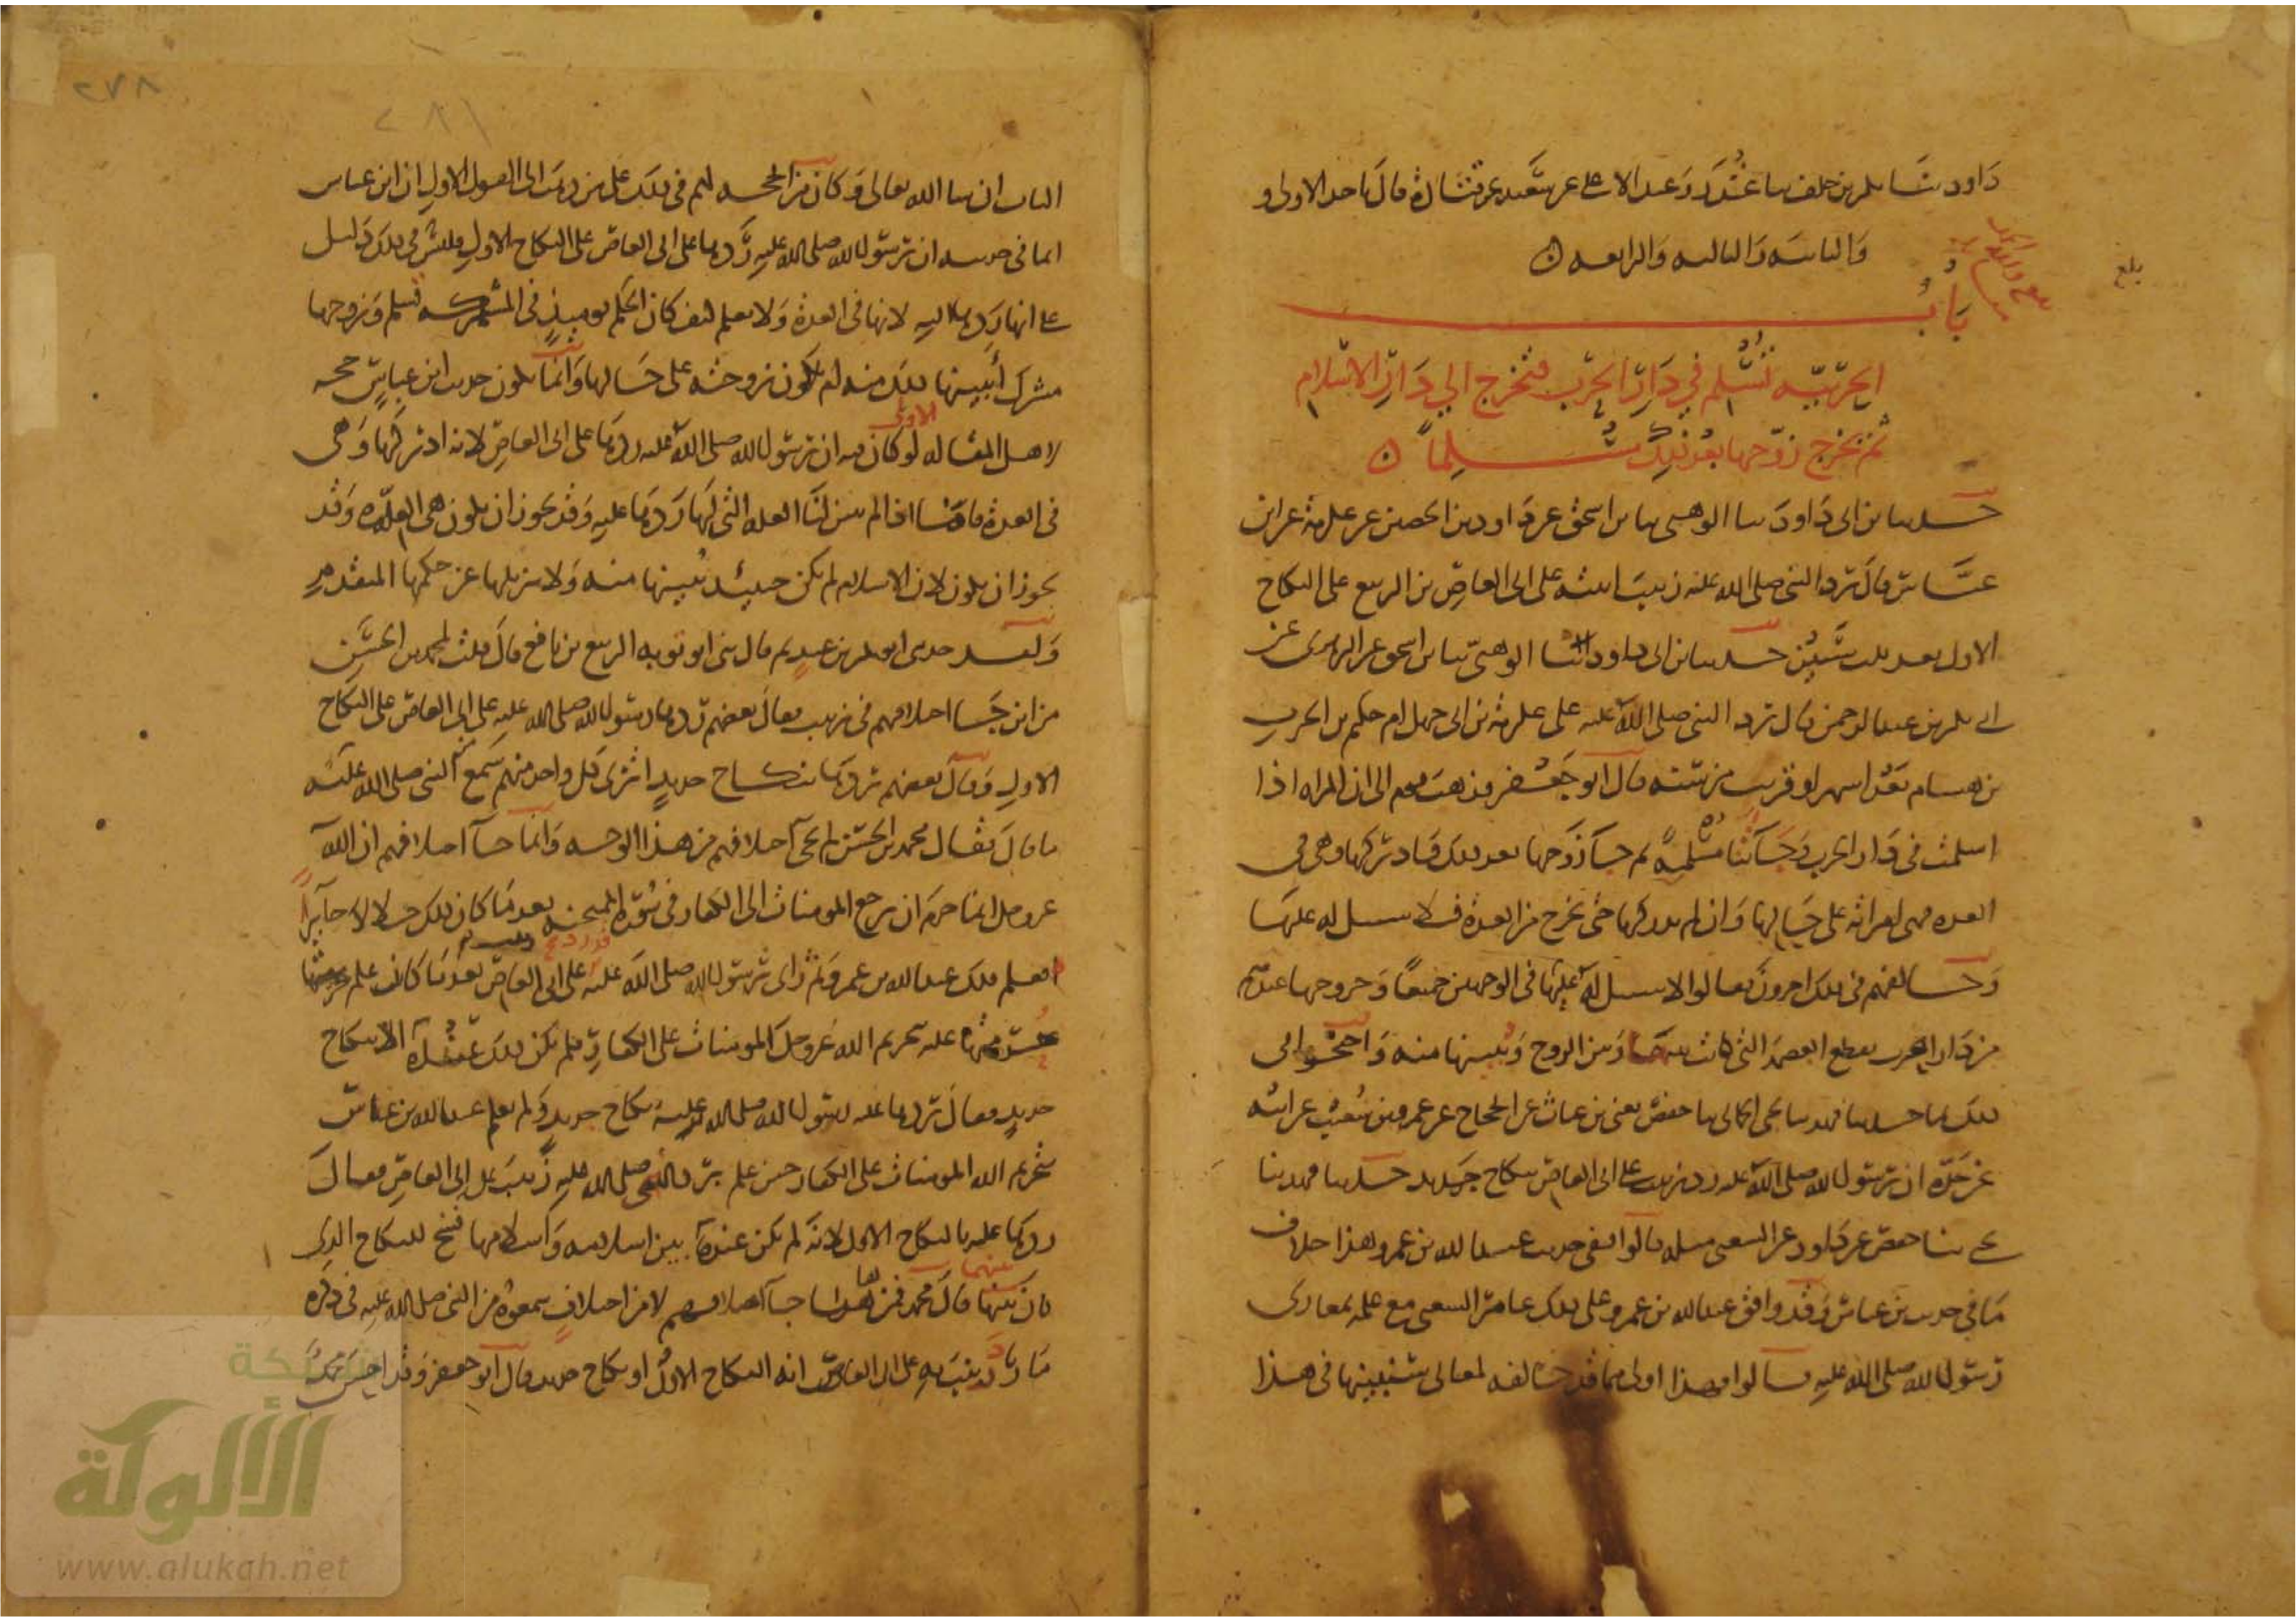 داود ثنا بكر بن خلف ثنا غندر وعبد الاعلى عن سعيد عن قتادة قال ناخذ الاولى و
والثانية والثالثة والرابعة
بلغ
باب
الحربية تسلم في دار الحرب فتخرج الي دار الاسلام
ثم يخرج زوجها بعد ذلك مسلما
حدثنا بن ابى داود ثنا الوهبى ثنا بن اسحق عن داود بن الحصين عن عكرمة عن ابن
عباس قال رد النبى صلى الله عليه زينب ابنته على ابى العاص بن الربيع على النكاح
الاول بعد ثلث سنين حدثنا بن ابى داود ثنا الوهبى ثنا بن اسحق عن الزهرى عن
ابى بكر بن عبد الرحمن قال رد النبى صلى الله عليه على عكرمة بن ابى جهل ام حكيم بن الحرث
بن هشام بعد اشهر او قريب من سنة قال ابو جعفر فذهب قوم الى ان المراة اذا
اسلمت فى دار الحرب وجاءتنا مسلمة ثم جا زوجها بعد ذلك فادركها وهى فى
العدة فهى امراته على حالها وان لم يدركها حتى تخرج من العدة فلا سبيل له عليها
وخالفهم فى ذلك اخرون فقالوا لا سبيل له عليها فى الوجهين جميعا وخروجها عندهم
من دار الحرب يقطع العصمة التى كانت بينها وبين الزوج وتبينها منه واحتجوا فى
ذلك بما حدثنا فهد ثنا يحى الحمانى ثنا حفص يعنى بن غياث عن الحجاج عن عمرو بن شعيب عن ابيه
عن جده ان رسول الله صلى الله عليه رد زينب على ابى العاص بنكاح جديد حدثنا فهد ثنا
يحى ثنا حفص عن داود عن الشعبى مثله قالوا ففى حديث عبد الله بن عمرو هذا خلاف
ما فى حديث بن عباس وقد وافق عبد الله بن عمرو على ذلك عامر الشعبى مع علمه بمغازى
رسول الله صلى الله عليه قالوا فهذا اولى مما قد خالفه لمعانى سنبينها فى هذا
٢٧٨
٢٨١
الباب ان شا الله تعالى وكان من الحجة لهم فى ذلك على من ذهب الى القول الاول ان ابن عباس
انما فى حديثه ان رسول الله صلى الله عليه ردها على ابى العاص على النكاح الاول فليس فى ذلك دليل
على انه ردها اليه لانها فى العدة ولا يعلم كيف كان الحكم يومئذ فى المشركة تسلم وزوجها
مشرك ايبينها ذلك منه ام تكون زوجته على حالها وانما يكون حديث ابن عباس حجة
لاهل المقالة الاولى لو كان فيه ان رسول الله صلى الله عليه ردها على ابى العاص لانه ادركها وهى
فى العدة فاما اذا لم يبين لنا العلة التى لها ردها عليه وقد يجوز ان يكون هى العدة وقد
يجوز ان يكون لان الاسلام لم يكن حينئذ يبينها منه ولا يزيلها عن حكمها المتقدم
ولقد حدثنى ابو بكر بن عبدة قال ثنى ابو توبة الربيع بن نافع قال قلت لمحمد بن الحسن
من اين جا اختلافهم فى زينب فقال بعضهم ردها رسول الله صلى الله عليه على ابى العاص على النكاح
الاول وقال بعضهم ردها بنكاح جديد اترى كل واحد منهم سمع النبى صلى الله عليه
ما قال فقال محمد بن الحسن لم يجى اختلافهم من هذا الوجه وانما جا اختلافهم ان الله
عز وجل انما حرم ان ترجع المومنات الى الكفار فى سورة الممتحنة بعد ما كان ذلك حلالا جايزا
فعلم ذلك عبد الله بن عمرو ثم راى رسول الله صلى الله عليه قد رد زينب على ابى العاص بعد ما كان علم
حرمتها عليه بتحريم الله عز وجل المومنات على الكفار فلم يكن ذلك عنده الا بنكاح
جديد فقال ردها عليه رسول الله صلى الله عليه بنكاح جديد ولم يعلم عبد الله بن عباس
بتحريم الله المومنات على الكفار حين علم برد النبى صلى الله عليه زينب على ابى العاص فقال
ردها عليه بالنكاح الاول لانه لم يكن عنده بين اسلامه واسلامها فسخ للنكاح الذى
كان بينهما قال محمد فمن هاهنا جا اختلافهم لا من اختلاف سمعوه من النبى صلى الله عليه فى ذكره
ما رد زينب به على ابى العاص انه النكاح الاول او نكاح جديد قال ابو جعفر وقد احسن محمد
شبكة
الألوكة
www.alukah.net